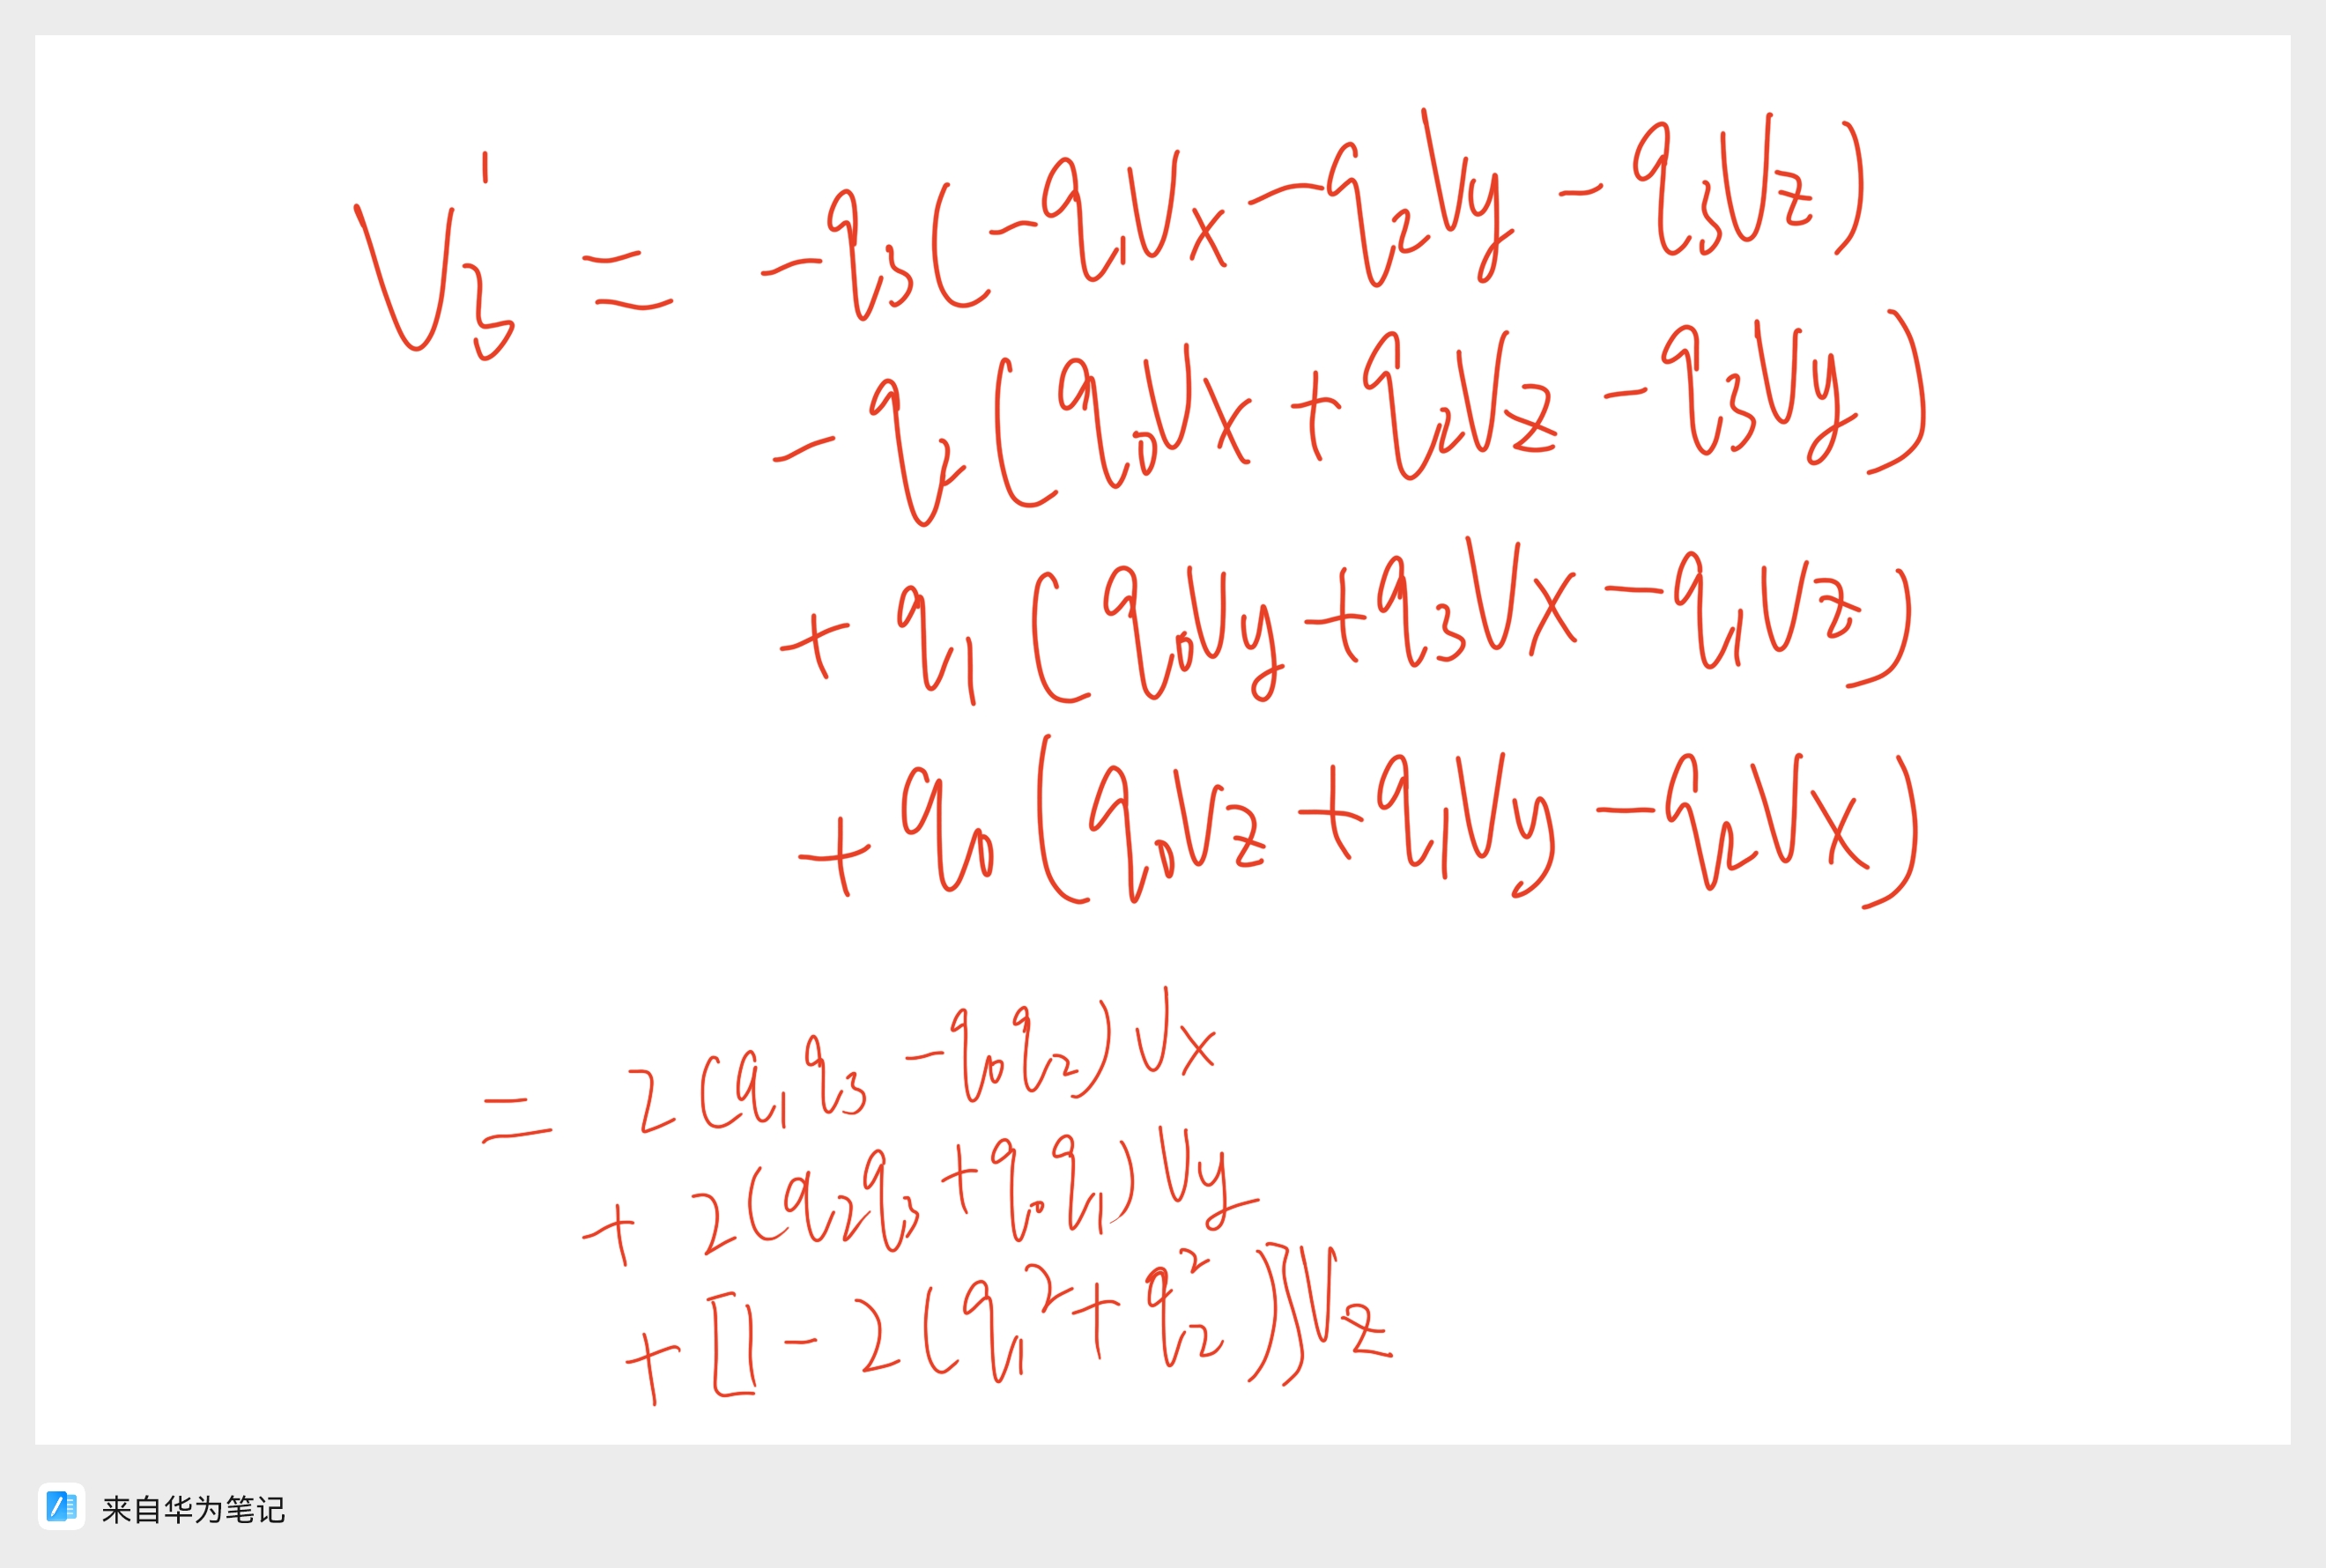 V₃' = -q₃(-q₁Vx - q₂Vy - q₃Vz)
- q₂(q₀Vx + q₂Vz - q₃Vy)
+ q₁(q₀Vy + q₃Vx - q₁Vz)
+ q₀(q₀Vz + q₁Vy - q₂Vx)
= 2(q₁q₃ - q₀q₂)Vx
+ 2(q₂q₃ + q₀q₁)Vy
+ [1 - 2(q₁² + q₂²)]Vz
来自华为笔记